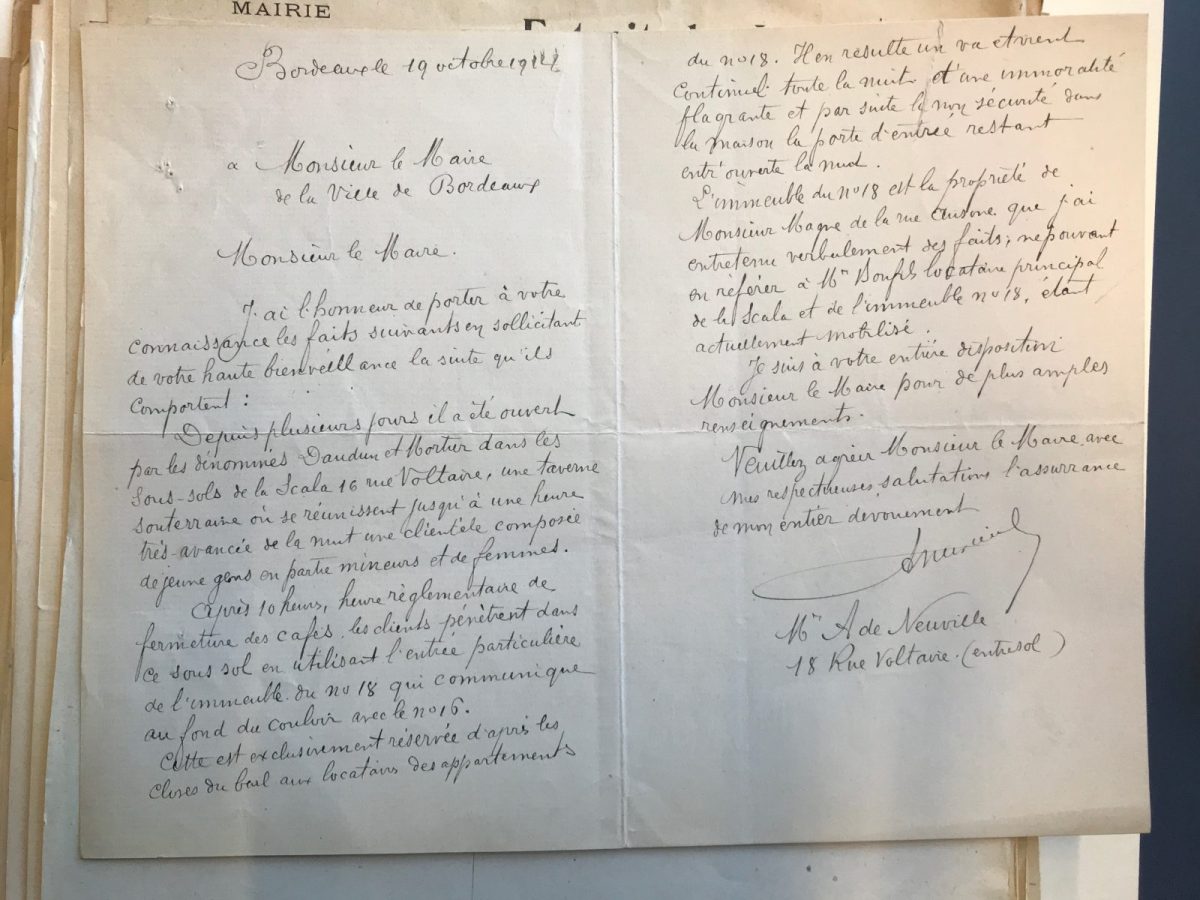 MAIRIE
Bordeaux le 19 octobre 1914
a Monsieur le Maire
de la Ville de Bordeaux
Monsieur le Maire.
J'ai l'honneur de porter à votre
connaissance les faits suivants en sollicitant
de votre haute bienveillance la suite qu'ils
comportent :
Depuis plusieurs jours il a été ouvert
par les dénommés Daudun et Mortier dans les
sous-sols de la Scala 16 rue Voltaire, une taverne
souterraine où se réunissent jusqu'à une heure
très-avancée de la nuit une clientèle composée
de jeune gens en partie mineurs et de femmes.
Après 10 heurs, heure règlementaire de
fermeture des cafés, les clients pénètrent dans
ce sous sol en utilisant l'entrée particulière
de l'immeuble du no 18 qui communique
au fond du couloir avec le no 16.
Cette est exclusivement réservée d'après les
closes du bail aux locatairs des appartements
du no 18. Il en resulte un va et vient
continuel toute la nuit d'une immoralité
flagrante et par suite la non sécurité dans
la maison la porte d'entrée restant
entr'ouverte la nuit.
L'immeuble du no 18 est la propriété de
Monsieur Magne de la rue Ausone que j'ai
entretenu verbalement des faits; ne pouvant
en référer à Mr Bonfils locataire principal
de la Scala et de l'immeuble no 18, étant
actuellement mobilisé.
Je suis à votre entière disposition
Monsieur le Maire pour de plus amples
renseignements.
Veuillez agréer Monsieur le Maire, avec
mes respectueuses salutations l'assurrance
de mon entier devouement
Mr A de Neuville
18 Rue Voltaire (entresol)